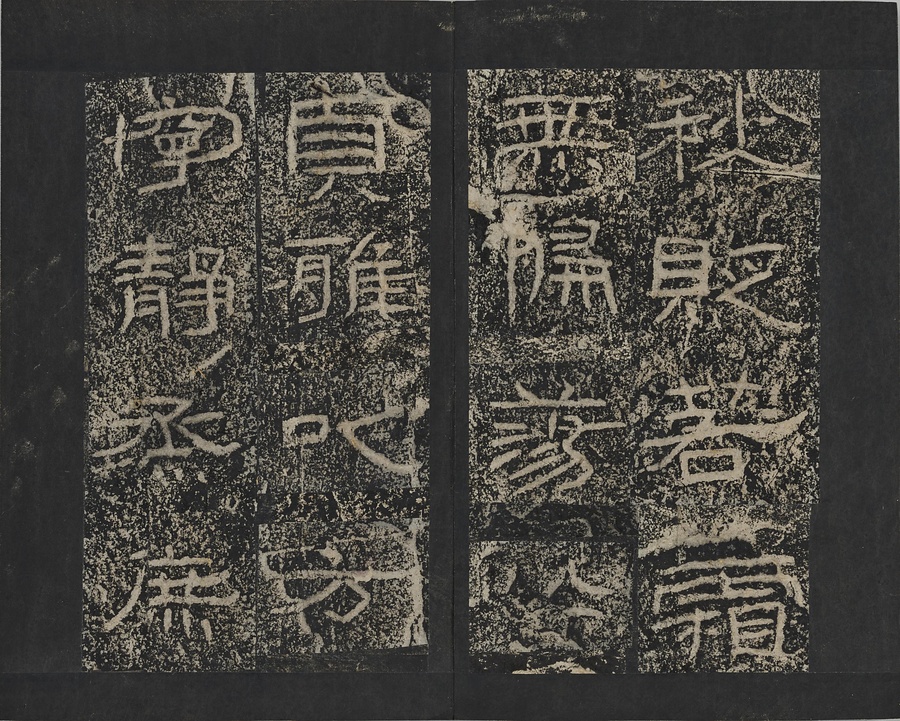 秋貶若霜
無偏蕩蕩
貞雅以方
寧靜烝庶